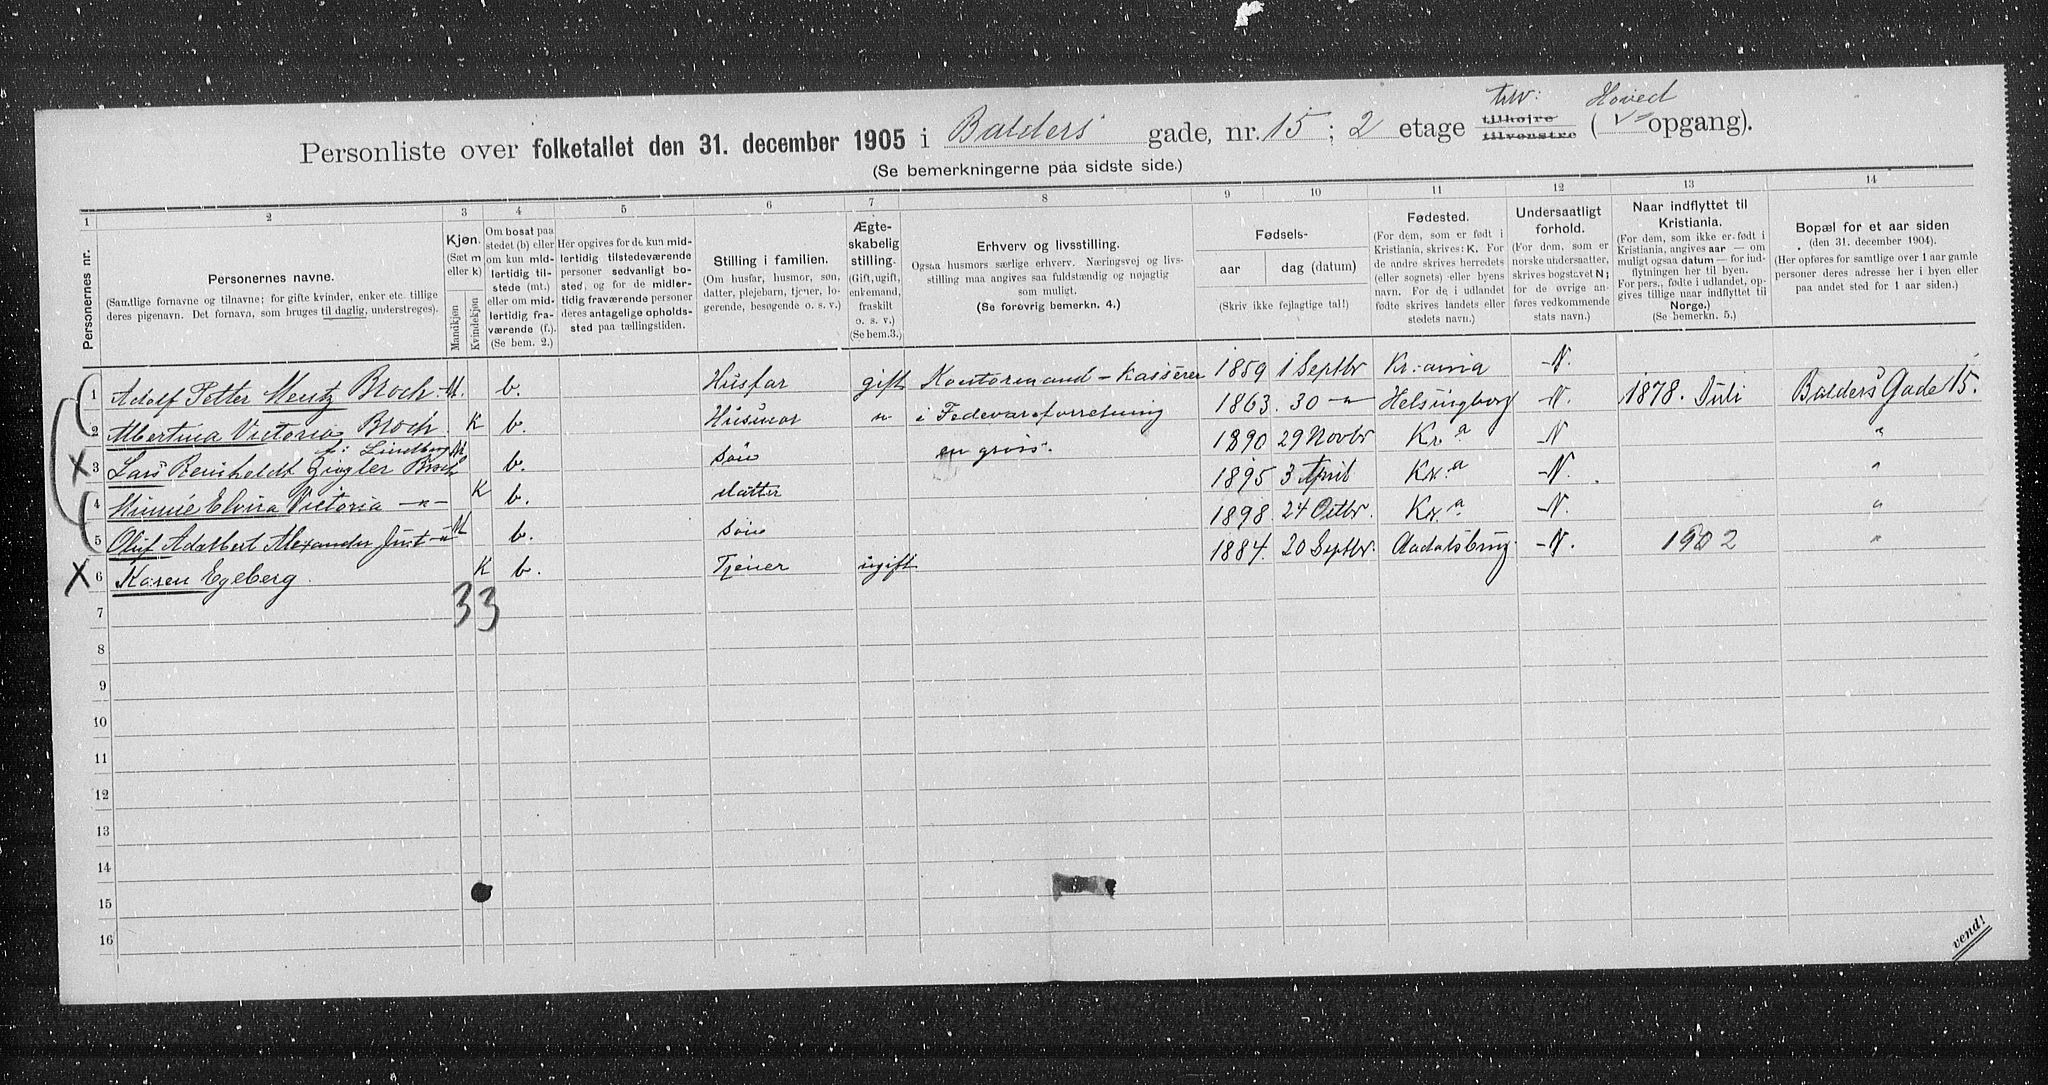 tilv: Hoved
Personliste over folketallet den 31. december 1905 i Balders' gade, nr. 15; 2 etage tilhøjre tilvenstre (opgang).
(Se bemerkningerne paa sidste side.)
1 2 3 4 5 6 7 8 9 10 11 12 13 14
Personernes nr.
Personernes navne.
(Samtlige fornavne og tilnavne; for gifte kvinder, enker etc. tillige
deres pigenavn. Det fornavn, som bruges til daglig, understreges).
Kjøn.
(Sæt m
eller k)
Mandkjøn
Kvindekjøn
Om bosat paa
stedet (b) eller
om kun mid-
lertidig til-
stede (mt.)
eller om mid-
lertidig fra-
værende (f.).
(Se bem. 2.)
Her opgives for de kun mid-
lertidig tilstedeværende
personer sedvanligt bo-
sted, og for de midler-
tidig fraværende personer
deres antagelige opholds-
sted paa tællingstiden.
Stilling i familien.
(Om husfar, husmor, søn,
datter, plejebarn, tjener, lo-
gerende, besøgende o. s. v.)
Ægte-
skabelig
stilling.
(Gift, ugift,
enkemand,
fraskilt
o. s. v.)
(Se bem.3.)
Erhverv og livsstilling.
Ogsaa husmors særlige erhverv. Næringsvej og livs-
stilling maa angives saa fuldstændig og nøjagtig
som muligt.
(Se forøvrig bemerkn. 4.)
Fødsels-
aar dag (datum)
(Skriv ikke fejlagtige tal!)
Fødested.
(For dem, som er født i
Kristiania, skrives: K. For
de andre skrives herredets
(eller sognets) eller byens
navn. For de i udlandet
fødte skrives landets eller
stedets navn.)
Undersaatligt
forhold.
(For dem, som er
norske undersaatter,
skrives bogstavet N;
for de øvrige an-
føres vedkommende
stats navn.)
Naar indflyttet til
Kristiania.
(For dem, som ikke er født i
Kristiania, angives aar — om
muligt ogsaa datum — for ind-
flytningen her til byen.
For pers., fødte i udlandet, op-
gives tillige naar indflyttet til
Norge.)
(Se bemerkn. 5.)
Bopæl for et aar siden
(den 31. december 1904).
(Her opføres for samtlige over 1 aar gamle
personer deres adresse her i byen eller
paa andet sted for 1 aar siden.)
1 Adolf Petter Mentz Broch. M. b. Husfar gift Kontormand - Kasserer 1859 1 Septbr Kr:ania -N.
2 Albertina Victoria Broch K b. Husmor " i Fedevareforretning 1863. 30 -"- Helsingborg -N. 1878. Juli Balders Gade 15.
f: Lindberg
X 3 Lars Reinholdt Ziegler Broch M b. Søn en gros. 1890 29 Novbr Kr.a -N "
4 Minnie Elvira Victoria -"- K b. datter 1895 3 April Kr.a -N. "
5 Oluf Adalbert Alexander Just -"- M b. Søn 1898. 24 Octbr. Kr.a -N. "
X 6 Karen Egeberg. K b. Tjener ugift 1884. 20 Septbr. Aadalsbrug. -N. 1902 "
33
7
8
9
10
11
12
13
14
15
16
vend!